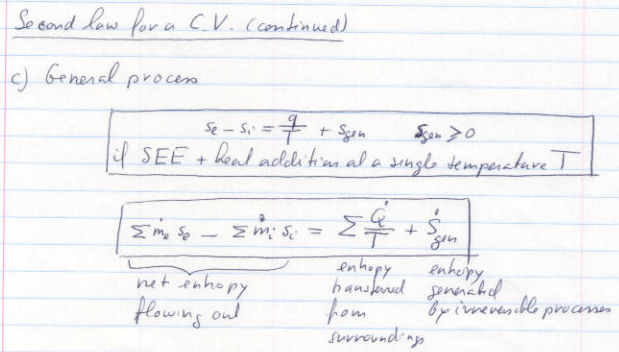 Second law for a C.V. (continued)
c) General process
se - si = q/T + sgen   sgen ≥ 0
if SEE + heat addition at a single temperature T
Σ ṁe se - Σ ṁi si = Σ Q̇/T + Ṡgen
net entropy flowing out
entropy transferred from surroundings
entropy generated by irreversible processes